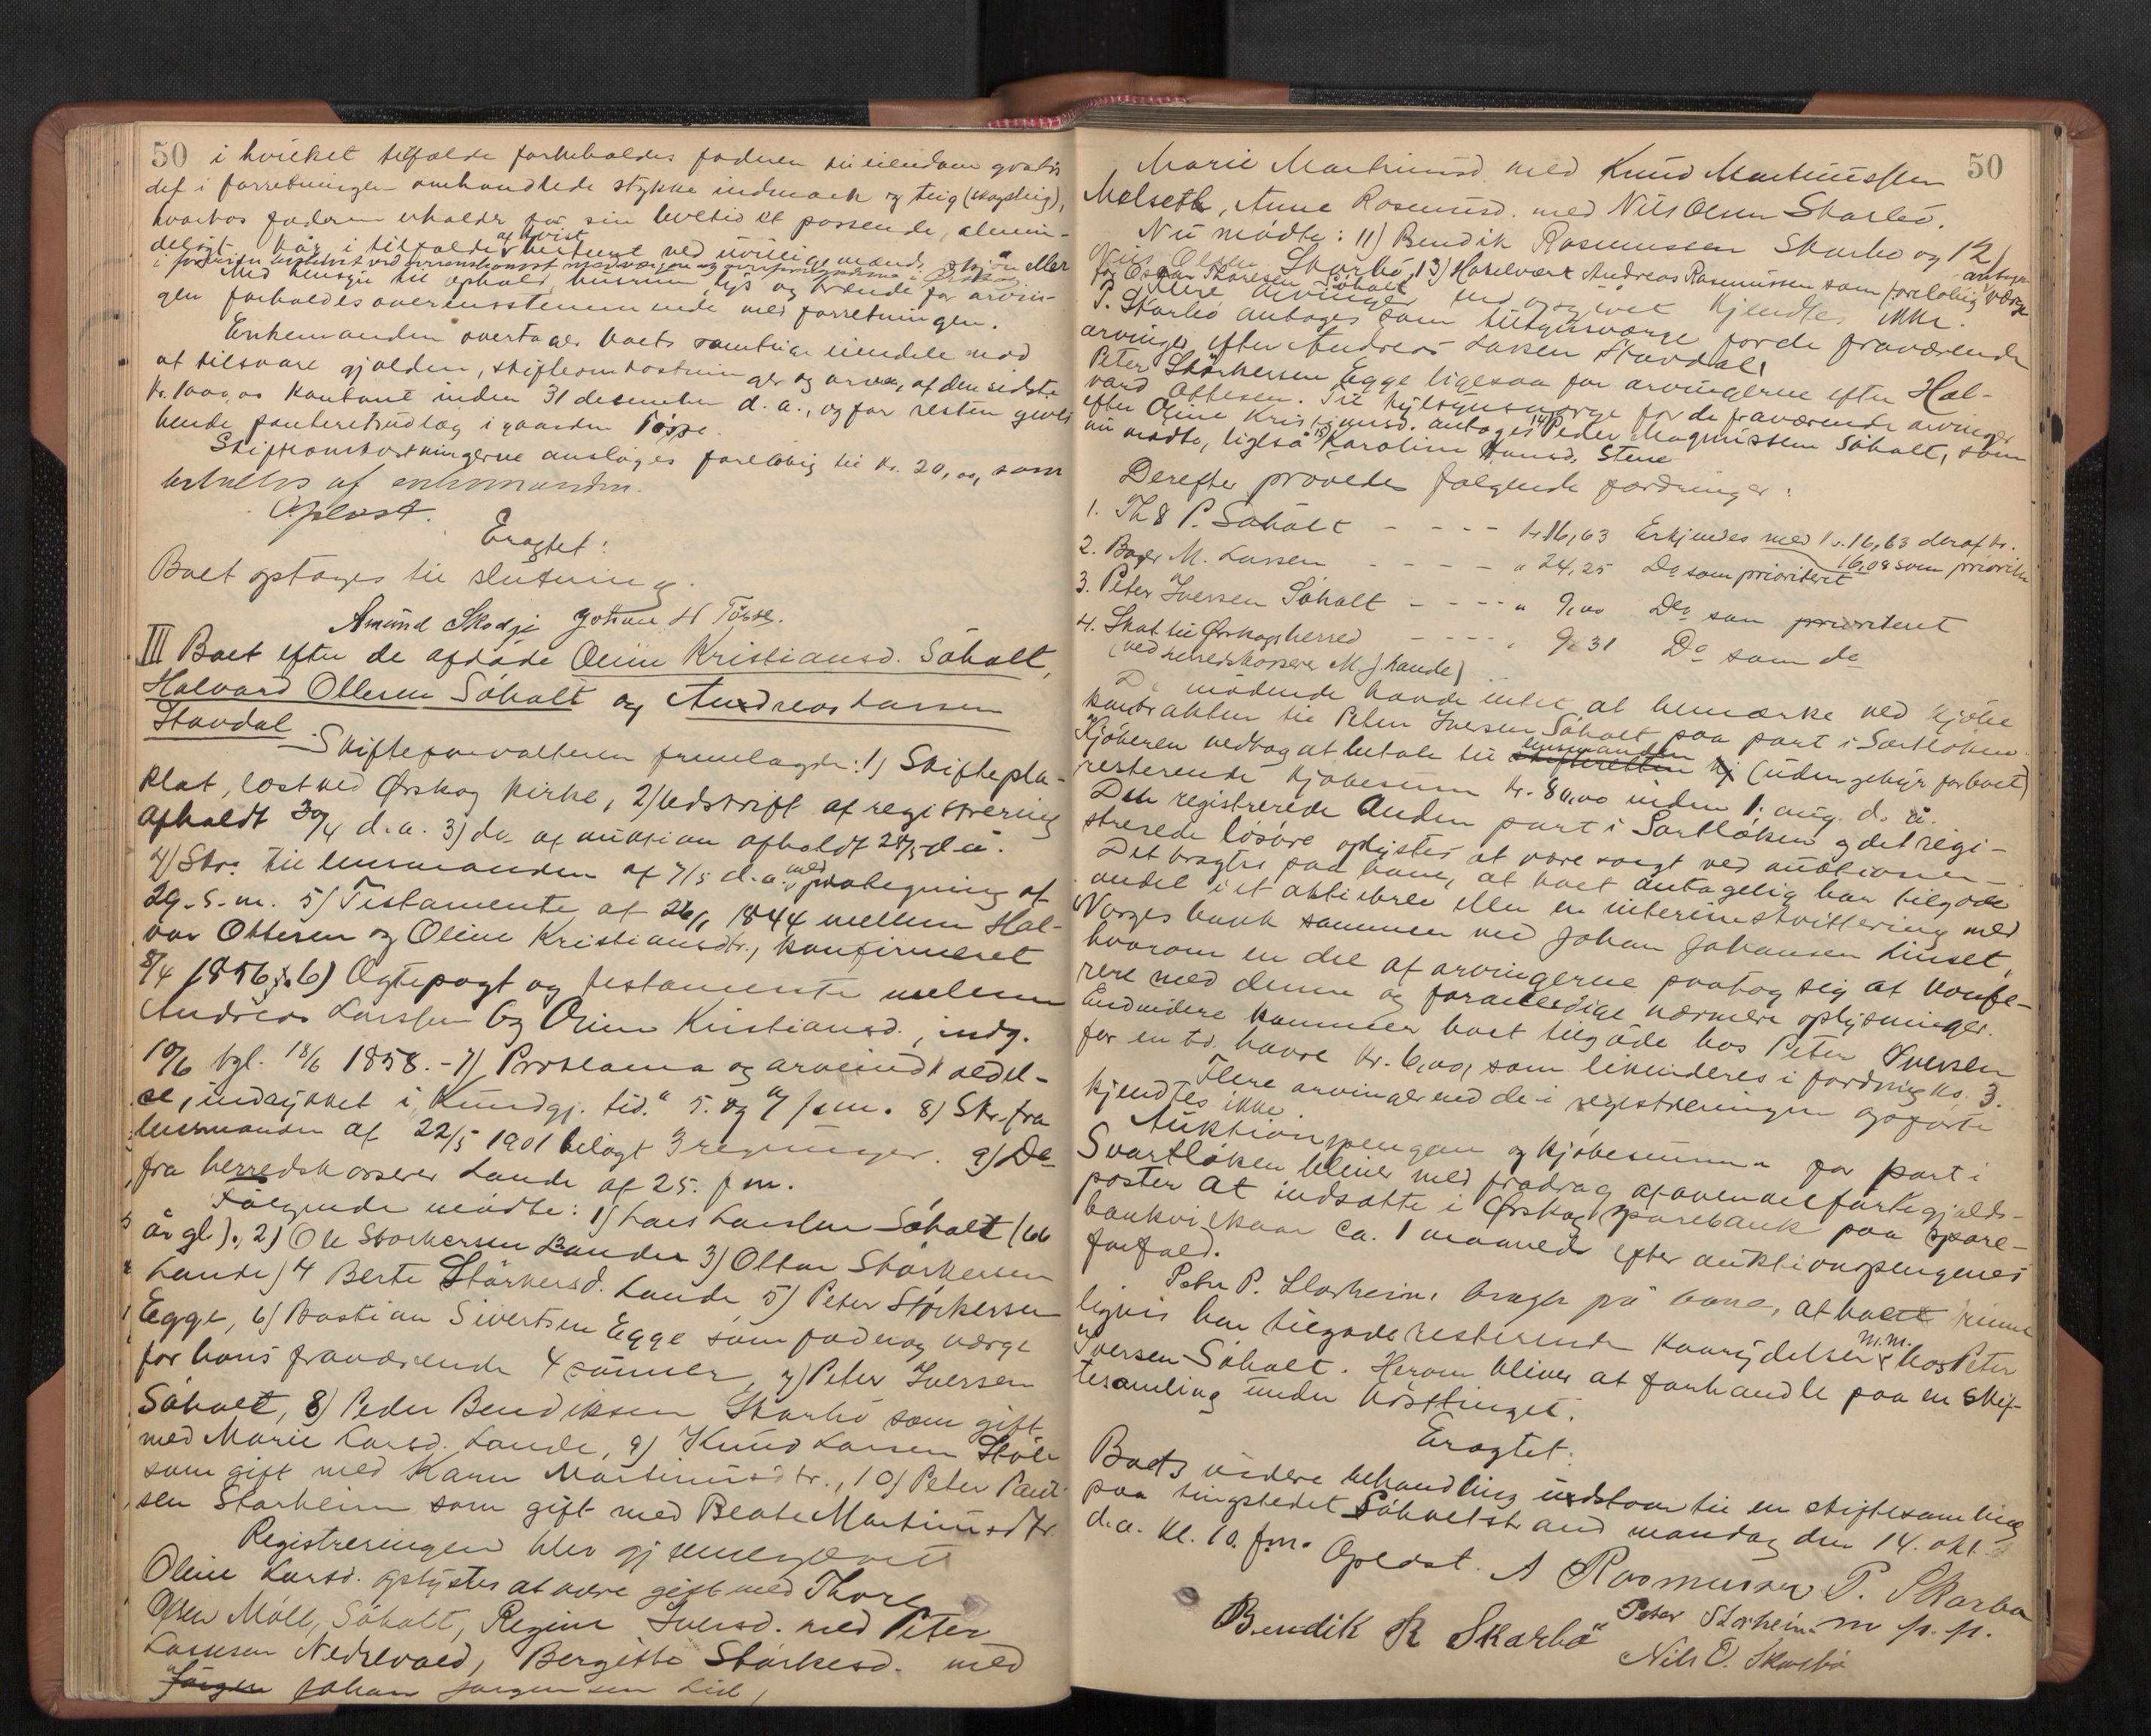 50 i hvilket tilfælde forbeholdes faderen sin eiendom gratis
det i forretningen omhandlede stykke indmark og teig (skogteig),
hvorhos faderen erholder for sin levetid et passende, almin-
deligt kår, i tilfælde af tvist bestemt ved uvillige mænds skjøn eller
Med hensyn til ophold, husrum, lys og brænde for arvin-
gen forholdes overensstemmende med forretningen.
Enkemanden overtager boets samtlige eiendele mod
at tilsvare gjælden, skifteomkostninger og arven, af den sidste
kr. 1000,00 kontant inden 31 desember d. a., og for resten gives
bende panteretsudlæg i gaarden Tösse.
Skifteomkostningerne ansløges foreløbig til kr. 20,00, som
betaltes af enkemanden.
Oplæst.
Eragtet:
Boet optages til slutning.
Amund Skodje Johan H Tösse.
III Boet efter de afdøde Oline Kristiansd. Söholt,
Halvard Ottesen Söholt og Andreas Larsen
Stavdal
Skifteforvalteren fremlagde: 1) Skiftepla-
kat, læst ved Ørskog kirke, 2) Udskrift af registrering
afholdt 30/4 d.a. 3) do af auktion afholdt 28/5 d.å.
4) Skr. til lensmanden af 7/5 d.a. med paategning af
29. s. m. 5) Testamente af 26/1 1844 mellem Hal-
vor Ottesen og Oline Kristiansdtr., konfirmeret
8/4 1856. 6) Ægtepagt og testamente mellem
Andreas Larssen og Oline Kristiansd., indg.
10/6 tgl. 18/6 1858. - 7) Proklama og arveindkaldel-
se, indrykket i "Kundgj. tid." 5. og 7 f.m. 8) Skr. fra
lensmanden af 22/5 1901 bilagt 3 regninger. 9) Do
fra herredskasserer Lande af 25. f.m.
Følgende mødte: 1) Lars Larsen Söholt (66
år gl.), 2) Ole Storkersen Lande 3) Ottar Störkersen
Lande) 4 Berte Störkersd. Lande 5) Peter Störkersen
Egge, 6) Bastian Sivertsen Egge som fader og værge
for hans fraværende 4 sönner, 7) Peter Iversen
Söholt, 8) Peder Bendiksen Skarbö som gift
med Marie Larsd. Lande, 9) Knud Larsen
som gift med Karen Martinusdtr., 10) Peter Paul-
sen Storheim som gift med Beate Martinusdtr.
Registreringen blev gjennemgaaet
Oline Larsd. oplystes at være gift med Thore
Olsen Möll, Söholt, Regine Iversd. med Peter
Larssen Nedrevold, Bergitte Störkesd. med
Jörgen Johan Jørgensen Lid,
50
Marie Martinusd. med Knud Martinussen
Melseth, Anne Rasmusd. med Nils Olsen Skarbö.
Nu mødte: 11) Bendik Rasmussen Skarbo og 12)
Nils Olsen Skarbö, 13) Haselværk Andreas Rasmussen som foreløbig antagen værge
for Oskar Thoresen Söholt
Flere arvinger end opgivet kjendtes ikke.
P. Skarbö antoges som tilsynsværge for de fraværende
arvinger efter Andreas Larsen Stavdal,
Peter Störkersen Egge ligesaa for arvingerne efter Hal-
vard Ottesen. Til tilsynsværge for de fraværende arvinger
efter Oline Kristiansd. antoges 14) Peder Magnussen Söholt, som
nu mødte, ligeså 15) Karoline Hansd. Stene
Derefter prøvedes følgende fordringer:
1. Ths P. Söholt - - - - kr 16,63 Erkjendes med kr. 16,63 deraf kr.
16,08 som prioritet
2. Bager M. Larsen - - - - " 24,25 Do som prioritert
3. Peter Iversen Söholt - - - - " 9,00 Do som prioritert
4. Skat til Ørskogs herred - - - - " 9,31 Do som do
(ved herredskasserer M. J. Lande)
De mødende havde intet at bemærke ved kjöbe
kontrakten til Peter Iversen Söholt paa part i Svartlöken
Kjöberen vedtog at betale til skifteretten lensmanden (uden gebyr for boet)
resterende kjöbesum kr. 80,00 inden 1. aug. d. å.
Den registrerede anden part i Svartlöken og det regi-
strerede løsøre oplystes at være solgt ved auktionen.
Det bragtes paa bane, at boet antagelig har tilgode
andel i et aktiebrev eller en interimskvittering med
Norges bank sammen med Johan Johansen Linset,
hvorom en del af arvingerne paatog sig at konfe-
rere med denne og foranledige nærmere oplysninger.
Endvidere kommer boet tilgode hos Peter Iversen
for en td. havre kr. 6,00, som likvideres i fordring No. 3.
Flere arvinger end de i registreringen opførte
kjendtes ikke.
Auktionspengene og kjöbesummen for part i
Svartlöken bliver med fradrag af ovenanførte gjælds-
poster at indsætte i Ørskog sparebank paa spare-
bankvilkaar ca. 1 maaned efter auktionspengenes
forfald.
Peter P. Storheim bragte på bane, at boet rime
ligvis har tilgode resterende kaarydelser m.m. hos Peter
Iversen Söholt. Herom bliver at forhandle paa en skif-
tesamling under høsttinget.
Eragtet:
Boets videre behandling udstaar til en skiftesamling
paa tingstedet Söholtstrand mandag den 14. okt.
d.a. kl. 10. f.m. Oplæst. A Rasmussen P. Skarbö
Bendik R Skarbö Peter Storheim m. p. p.
Nils O. Skarbö